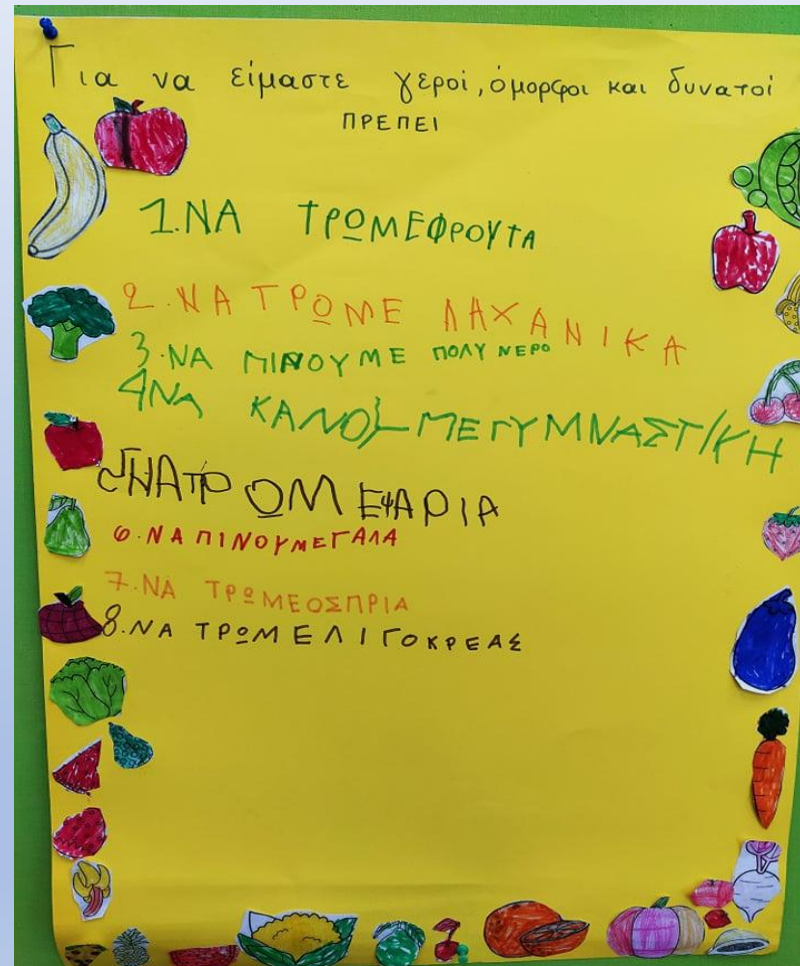 Για να είμαστε γεροί, όμορφοι και δυνατοί
ΠΡΕΠΕΙ
1.ΝΑ ΤΡΩΜΕΦΡΟΥΤΑ
2.ΝΑ ΤΡΩΜΕ ΛΑΧΑΝΙΚΑ
3.ΝΑ ΠΙΝΟΥΜΕ ΠΟΛΥ ΝΕΡΟ
4ΝΑ ΚΑΝΟΥΜΕΓΥΜΝΑΣΤΙΚΗ
5ΝΑΤΡΩΜΕΨΑΡΙΑ
6.ΝΑ ΠΙΝΟΥΜΕΓΑΛΑ
7.ΝΑ ΤΡΩΜΕΟΣΠΡΙΑ
8.ΝΑ ΤΡΩΜΕΛΙΓΟΚΡΕΑΣ